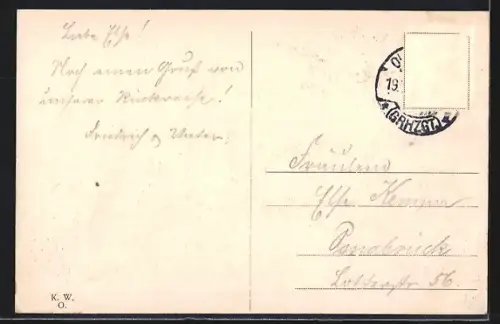 Liebe Else!
Noch einen Gruß von
unserer Rückreise!
Friedrich u Vater.
O
19.
*(GRHZGT.)*
Fräulein
Else
Osnabrück
Lotterstr 56.
K. W.
O.